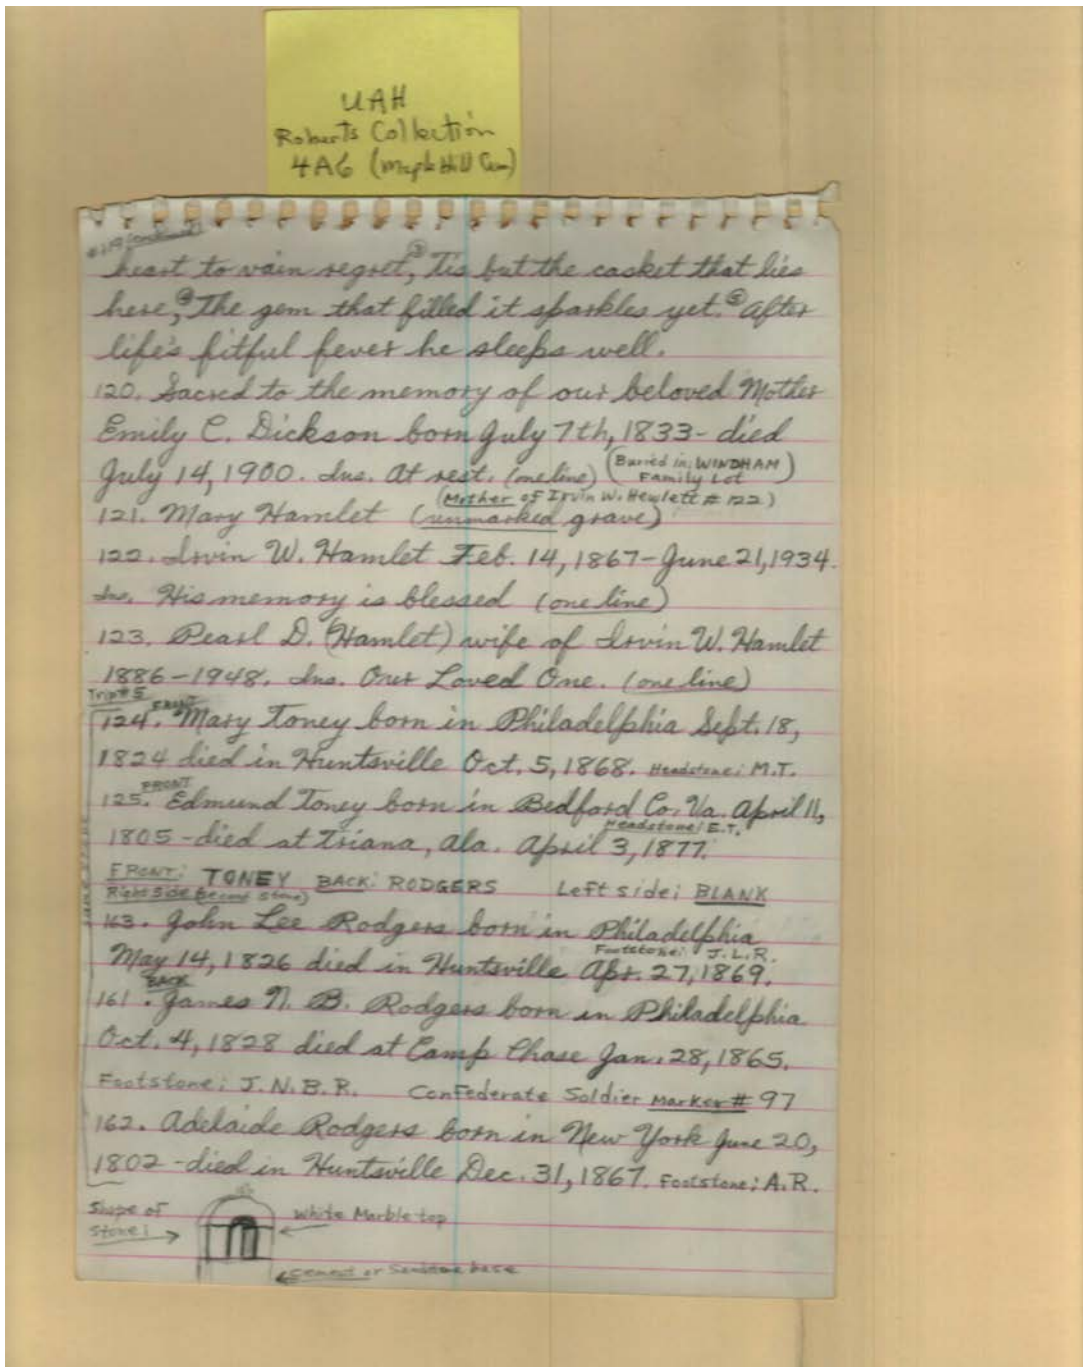 UAH
Roberts Collection
4A6 (Maple Hill Cem)
#119 (continued)
heart to vain regret, ③ Tis but the casket that lies
here, ④ The gem that filled it sparkles yet. ⑤ After
life's fitful fever he sleeps well.
120. Sacred to the memory of our beloved Mother
Emily C. Dickson born July 7th, 1833- died
July 14, 1900. Ins. At rest. (one line) (Buried in WINDHAM Family Lot)
(Mother of Irvin W. Hewlett # 122)
121. Mary Hamlet (unmarked grave)
122. Irvin W. Hamlet Feb. 14, 1867-June 21, 1934.
Ins. His memory is blessed (one line)
123. Pearl D. (Hamlet) wife of Irvin W. Hamlet
1886-1948. Ins. Our Loved One. (one line)
Trip #5
FRONT
124. Mary Toney born in Philadelphia Sept. 18,
1824 died in Huntsville Oct. 5, 1868. Headstone: M.T.
FRONT
125. Edmund Toney born in Bedford Co. Va. April 11,
Headstone: E.T.
1805-died at Triana, Ala. April 3, 1877.
FRONT: TONEY BACK: RODGERS Left side: BLANK
Right Side (second stone)
163. John Lee Rodgers born in Philadelphia
Footstone: J.L.R.
May 14, 1826 died in Huntsville Apr. 27, 1869.
BACK
161. James N. B. Rodgers born in Philadelphia
Oct. 4, 1828 died at Camp Chase Jan. 28, 1865.
Footstone: J.N.B.R. Confederate Soldier Marker # 97
162. Adelaide Rodgers born in New York June 20,
1802-died in Huntsville Dec. 31, 1867. Footstone: A.R.
Shape of
stone:
White Marble top
cement or Sandstone base